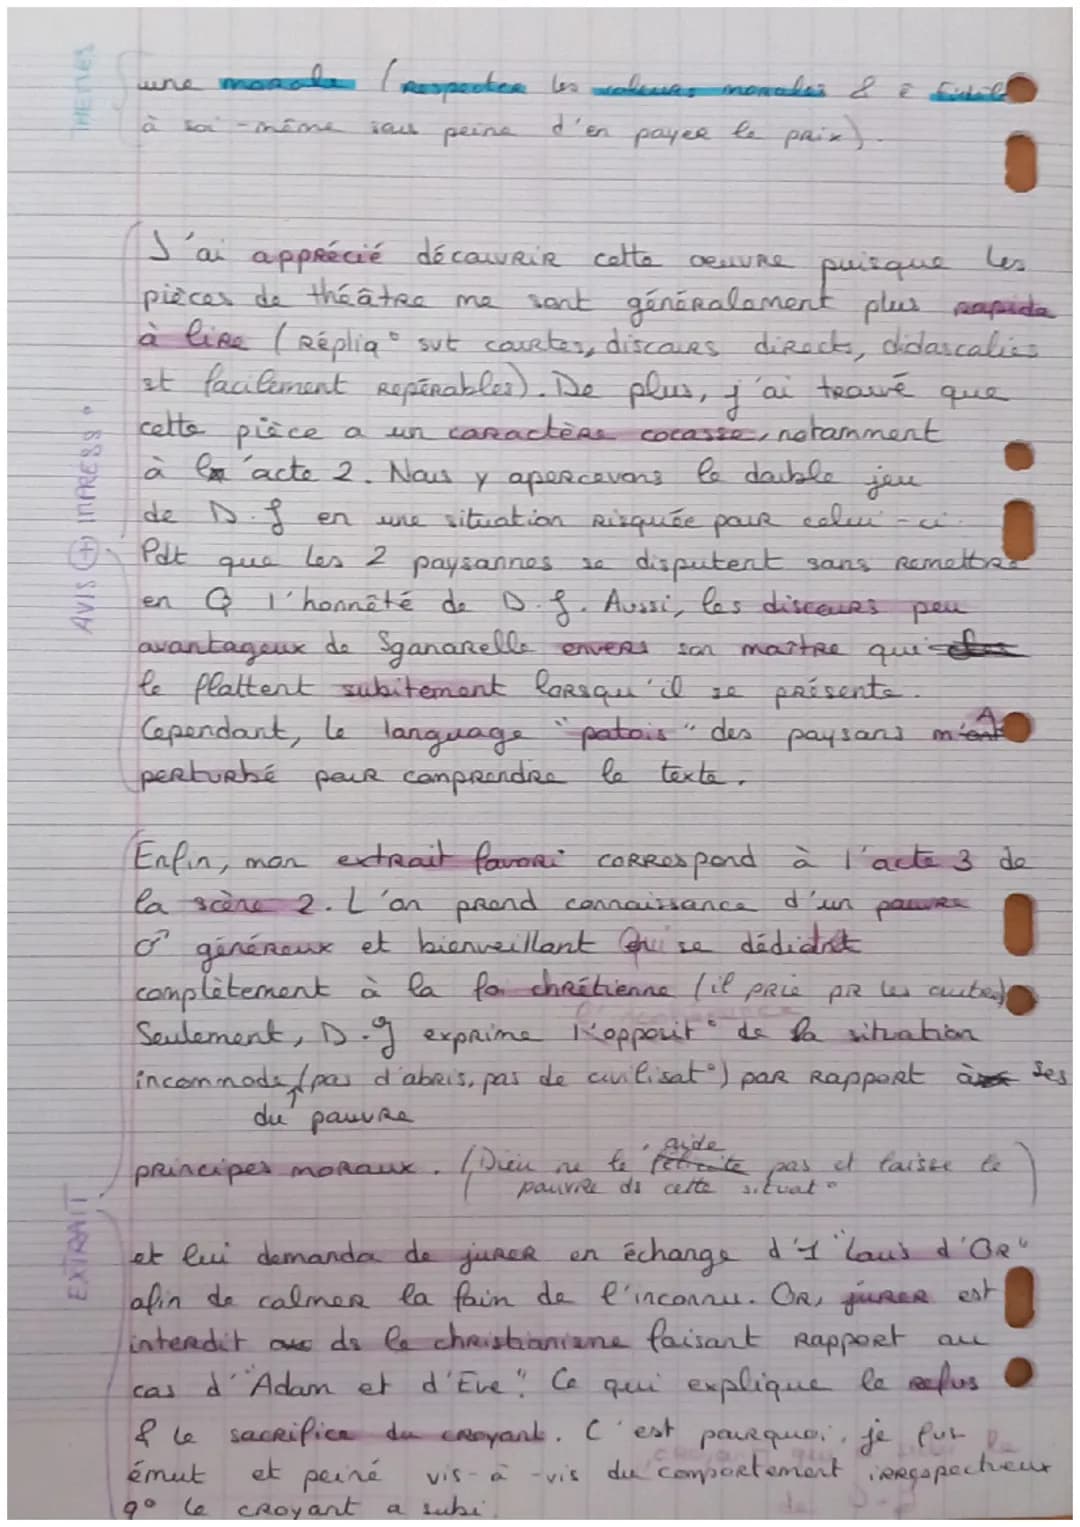 THEMES
une morale (respecter les valeurs morales & ê fidèle
à soi-même sous peine d'en payer le prix).
J'ai apprécié découvrir cette oeuvre puisque les
pièces de théâtre me sont généralement plus rapide
à lire (répliq° svt courtes, discours directs, didascalies
st facilement repérables). De plus, j'ai trouvé que
cette pièce a un caractère cocasse, notamment
à l'acte 2. Nous y apercevons le double jeu
de D.J en une situation risquée pour celui-ci.
Pdt que les 2 paysannes se disputent sans remettre
en Q l'honnêté de D.J. Aussi, les discours peu
avantageux de Sganarelle envers son maître qui
le flattent subitement lorsqu'il se présente.
Cependant, le language "patois" des paysans m'A
perturbé pour comprendre le texte.
AVIS (+) IMPRESS°
Enfin, mon extrait favori correspond à l'acte 3 de
la scène 2. L'on prend connaissance d'un pauvre
♂ généreux et bienveillant qui se dédidnt
complètement à la foi chrétienne (il prie pr les autres)
Seulement, D.J exprime l'opposit° de la situation
incommode (pas d'abris, pas de civilisat°) par rapport à ses
du pauvre
principes moraux. (Dieu ne le aide pas et laisse le
pauvre ds cette situat°)
et lui demanda de jurer en échange d'1 "Louis d'Or"
afin de calmer la faim de l'inconnu. Or, jurer est
interdit ds le christianisme faisant rapport au
cas d'"Adam et d'Eve". Ce qui explique le refus
& le sacrifice du croyant. C'est pourquoi, je fus
émut et peiné vis-à-vis du comportement irrespectueux
q° le croyant a subi.
EXTRAIT